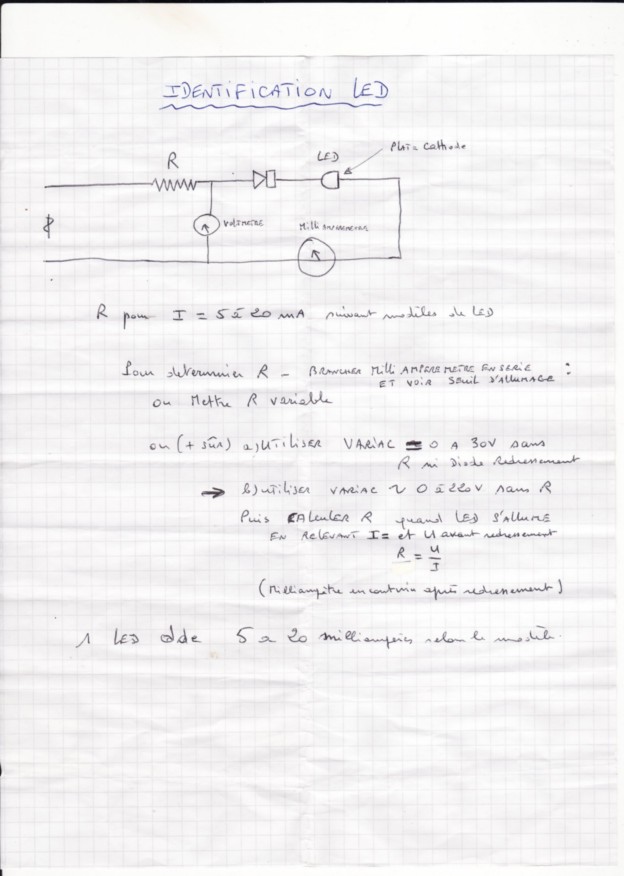 IDENTIFICATION LED
R
LED
Plat = Cathode
VOLTMETRE
Milli AMPEREMETRE
R pour I = 5 à 20 mA suivant modèles de LED
Pour determiner R - BRANCHER Milli AMPEREMETRE EN SERIE
ET VOIR SEUIL D'ALLUMAGE :
ou Mettre R variable
ou (+ sûr) a) UTILISER VARIAC = 0 A 30V sans
R ni Diode Redressement
→ b) UTILISER VARIAC ~ 0 à 220V sans R
Puis CAlculER R quand LED S'AllUME
EN RELEVANT I = et U avant redressement
R = U/I
(Milliampère en continu après redressement)
1 LED 5 a 20 milliampères selon le modèle.